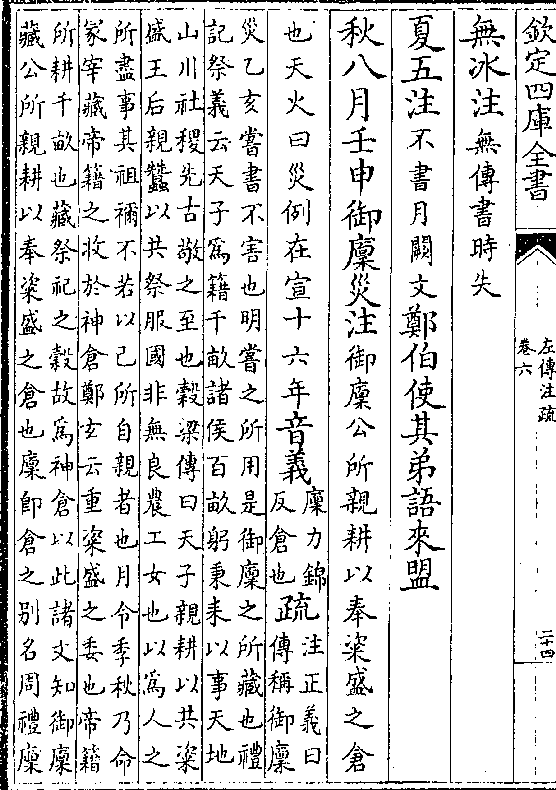 欽定四庫全書
左傳注疏
卷六
二十四
無冰注無傳書時失
夏五注不書月闕文鄭伯使其弟語來盟
秋八月壬申御廩災注御廩公所親耕以奉粢盛之倉
也天火曰災例在宣十六年音義廩力錦反倉也疏注正義曰傳稱御廩
災乙亥嘗書不害也明嘗之所用是御廩之所藏也禮
記祭義云天子爲籍千畝諸侯百畝躬秉耒以事天地
山川社稷先古敬之至也穀梁傳曰天子親耕以共粢
盛王后親蠶以共祭服國非無良農工女也以爲人之
所盡事其祖禰不若以己所自親者也月令季秋乃命
冢宰藏帝籍之收於神倉鄭玄云重粢盛之委也帝籍
所耕千畝也藏祭祀之穀故爲神倉以此諸文知御廩
藏公所親耕以奉粢盛之倉也廩即倉之别名周禮廩